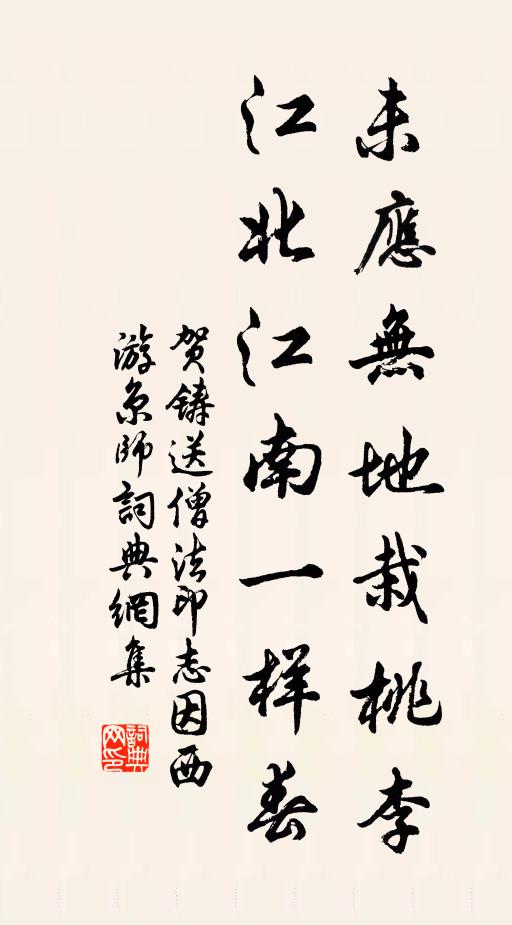 未應無地栽桃李
江北江南一样春
贺鑄送僧法印志因西
游京師詞典網集
詞典
网印